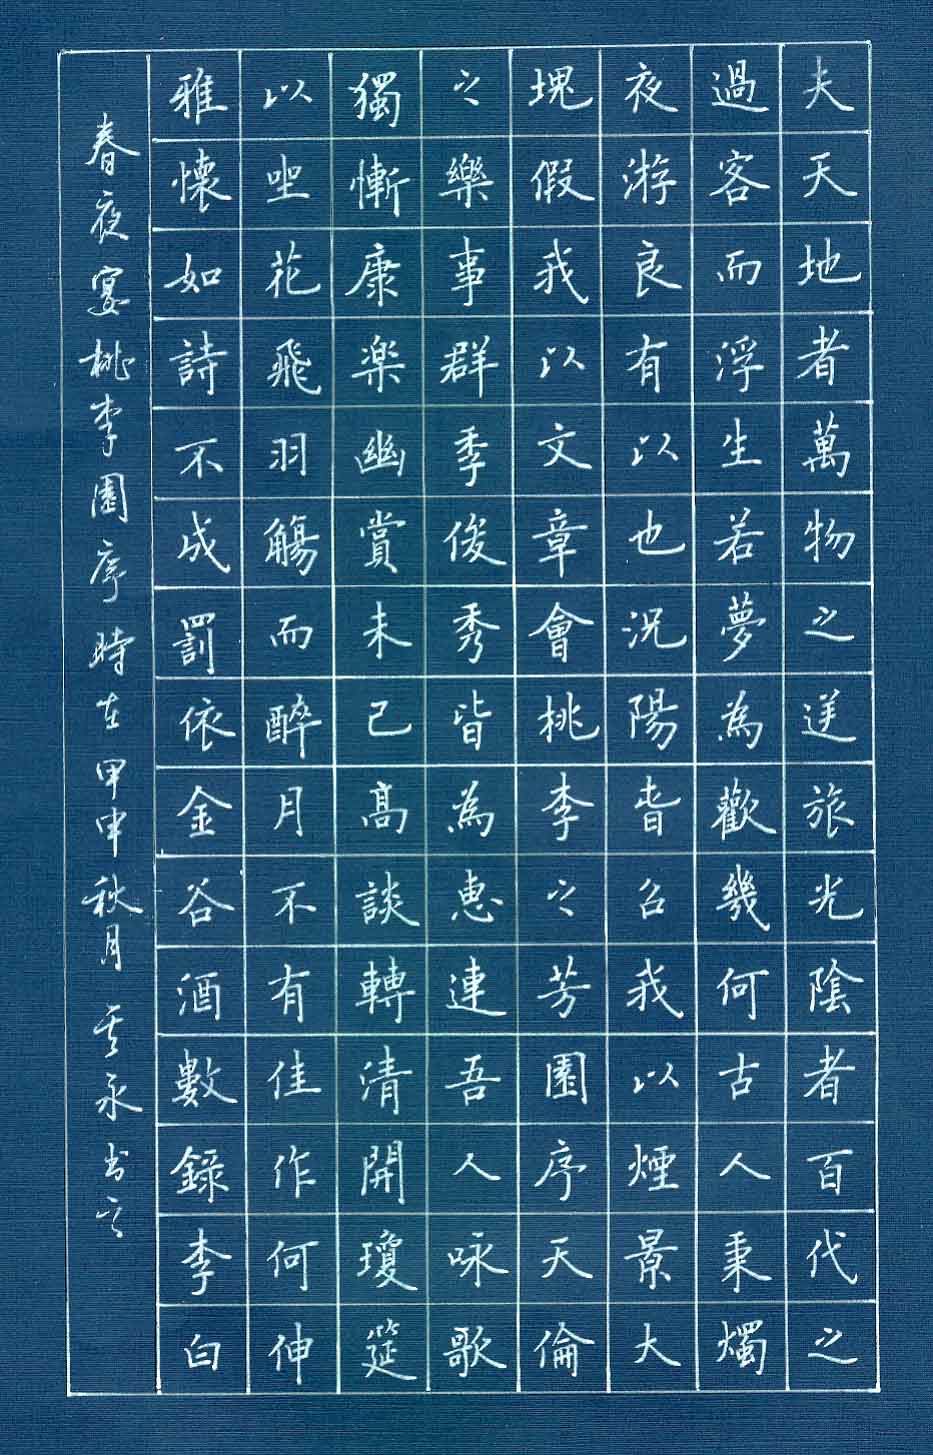 夫天地者萬物之逆旅光陰者百代之
過客而浮生若夢為歡幾何古人秉燭
夜游良有以也況陽旾召我以煙景大
塊假我以文章會桃李之芳園序天倫
之樂事群季俊秀皆為惠連吾人咏歌
獨慚康楽幽賞未已高談轉清開瓊筵
以坐花飛羽觴而醉月不有佳作何伸
雅懷如詩不成罰依金谷酒數錄李白
春夜宴桃李園序時在甲申秋月 永书之